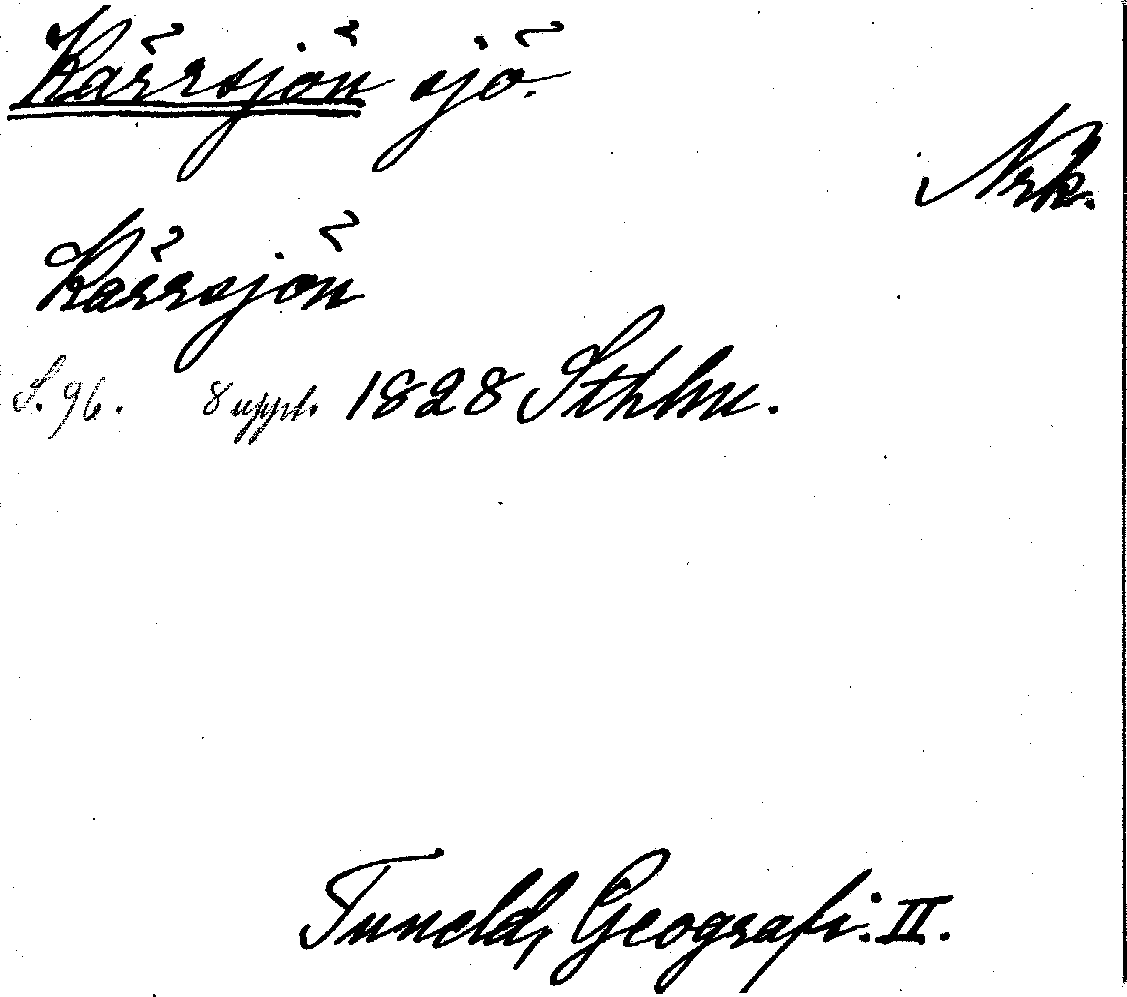 Kärrsjön sjö.
Nrk.
Kärrsjön
S. 96. 8 uppl. 1828 Sthlm.
Tuneld, Geografi. II.